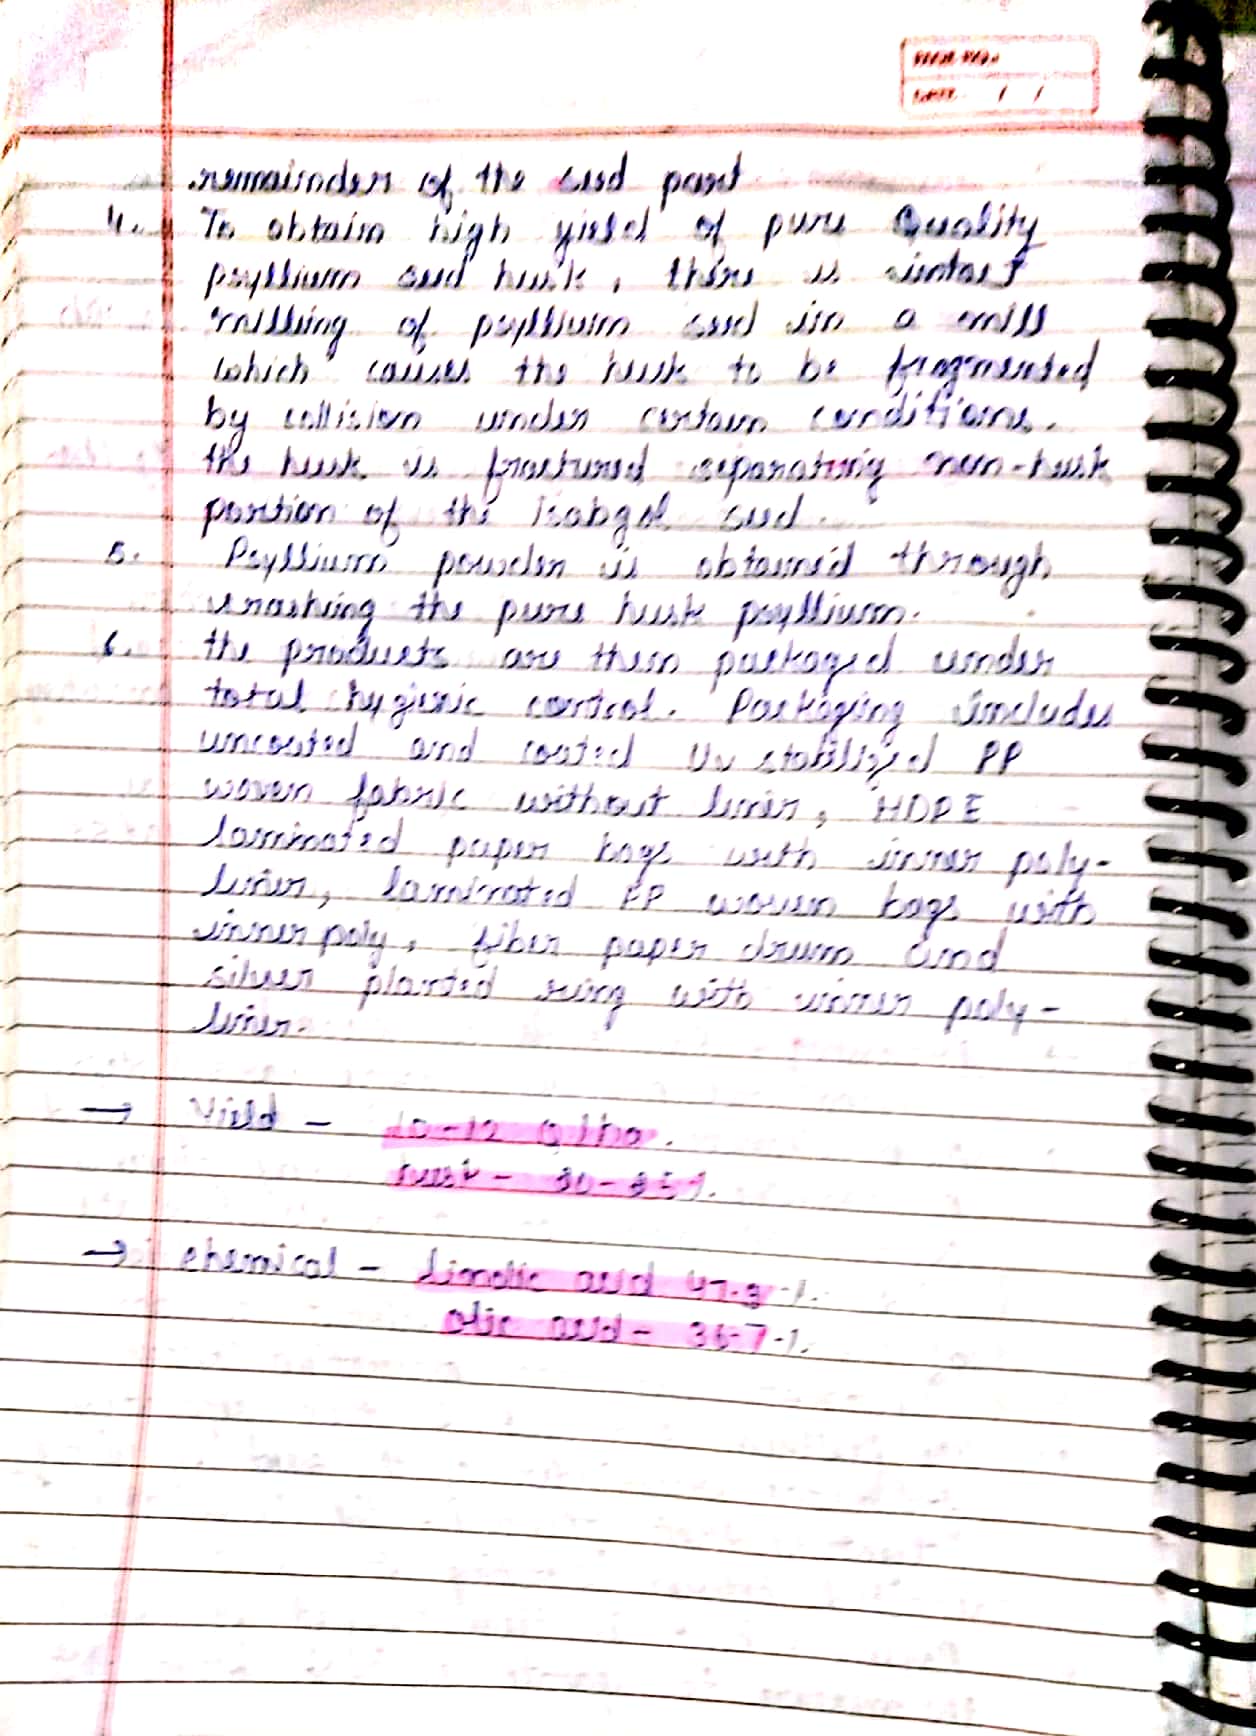 PAGE NO.
DATE / /
remainder of the seed part
4. To obtain high yield of pure Quality
psyllium seed husk, there is intact
milling of psyllium seed in a mill
which causes the husk to be fragmented
by collision under certain conditions.
the husk is fractured separating non-husk
portion of the isabgol seed.
5. Psyllium powder is obtained through
crashing the pure husk psyllium.
6. the products are then packaged under
total hygienic control. Packaging includes
uncoated and coated Uv stabilized PP
woven fabric without liner, HDPE
laminated paper bags with inner poly-
liner, laminated PP woven bags with
inner poly, fiber paper drum and
silver planted ring with inner poly-
liner.
→ Yield - 10-12 q/ha.
husk -
→ chemical - Linolic acid
olic acid - 36.7%.